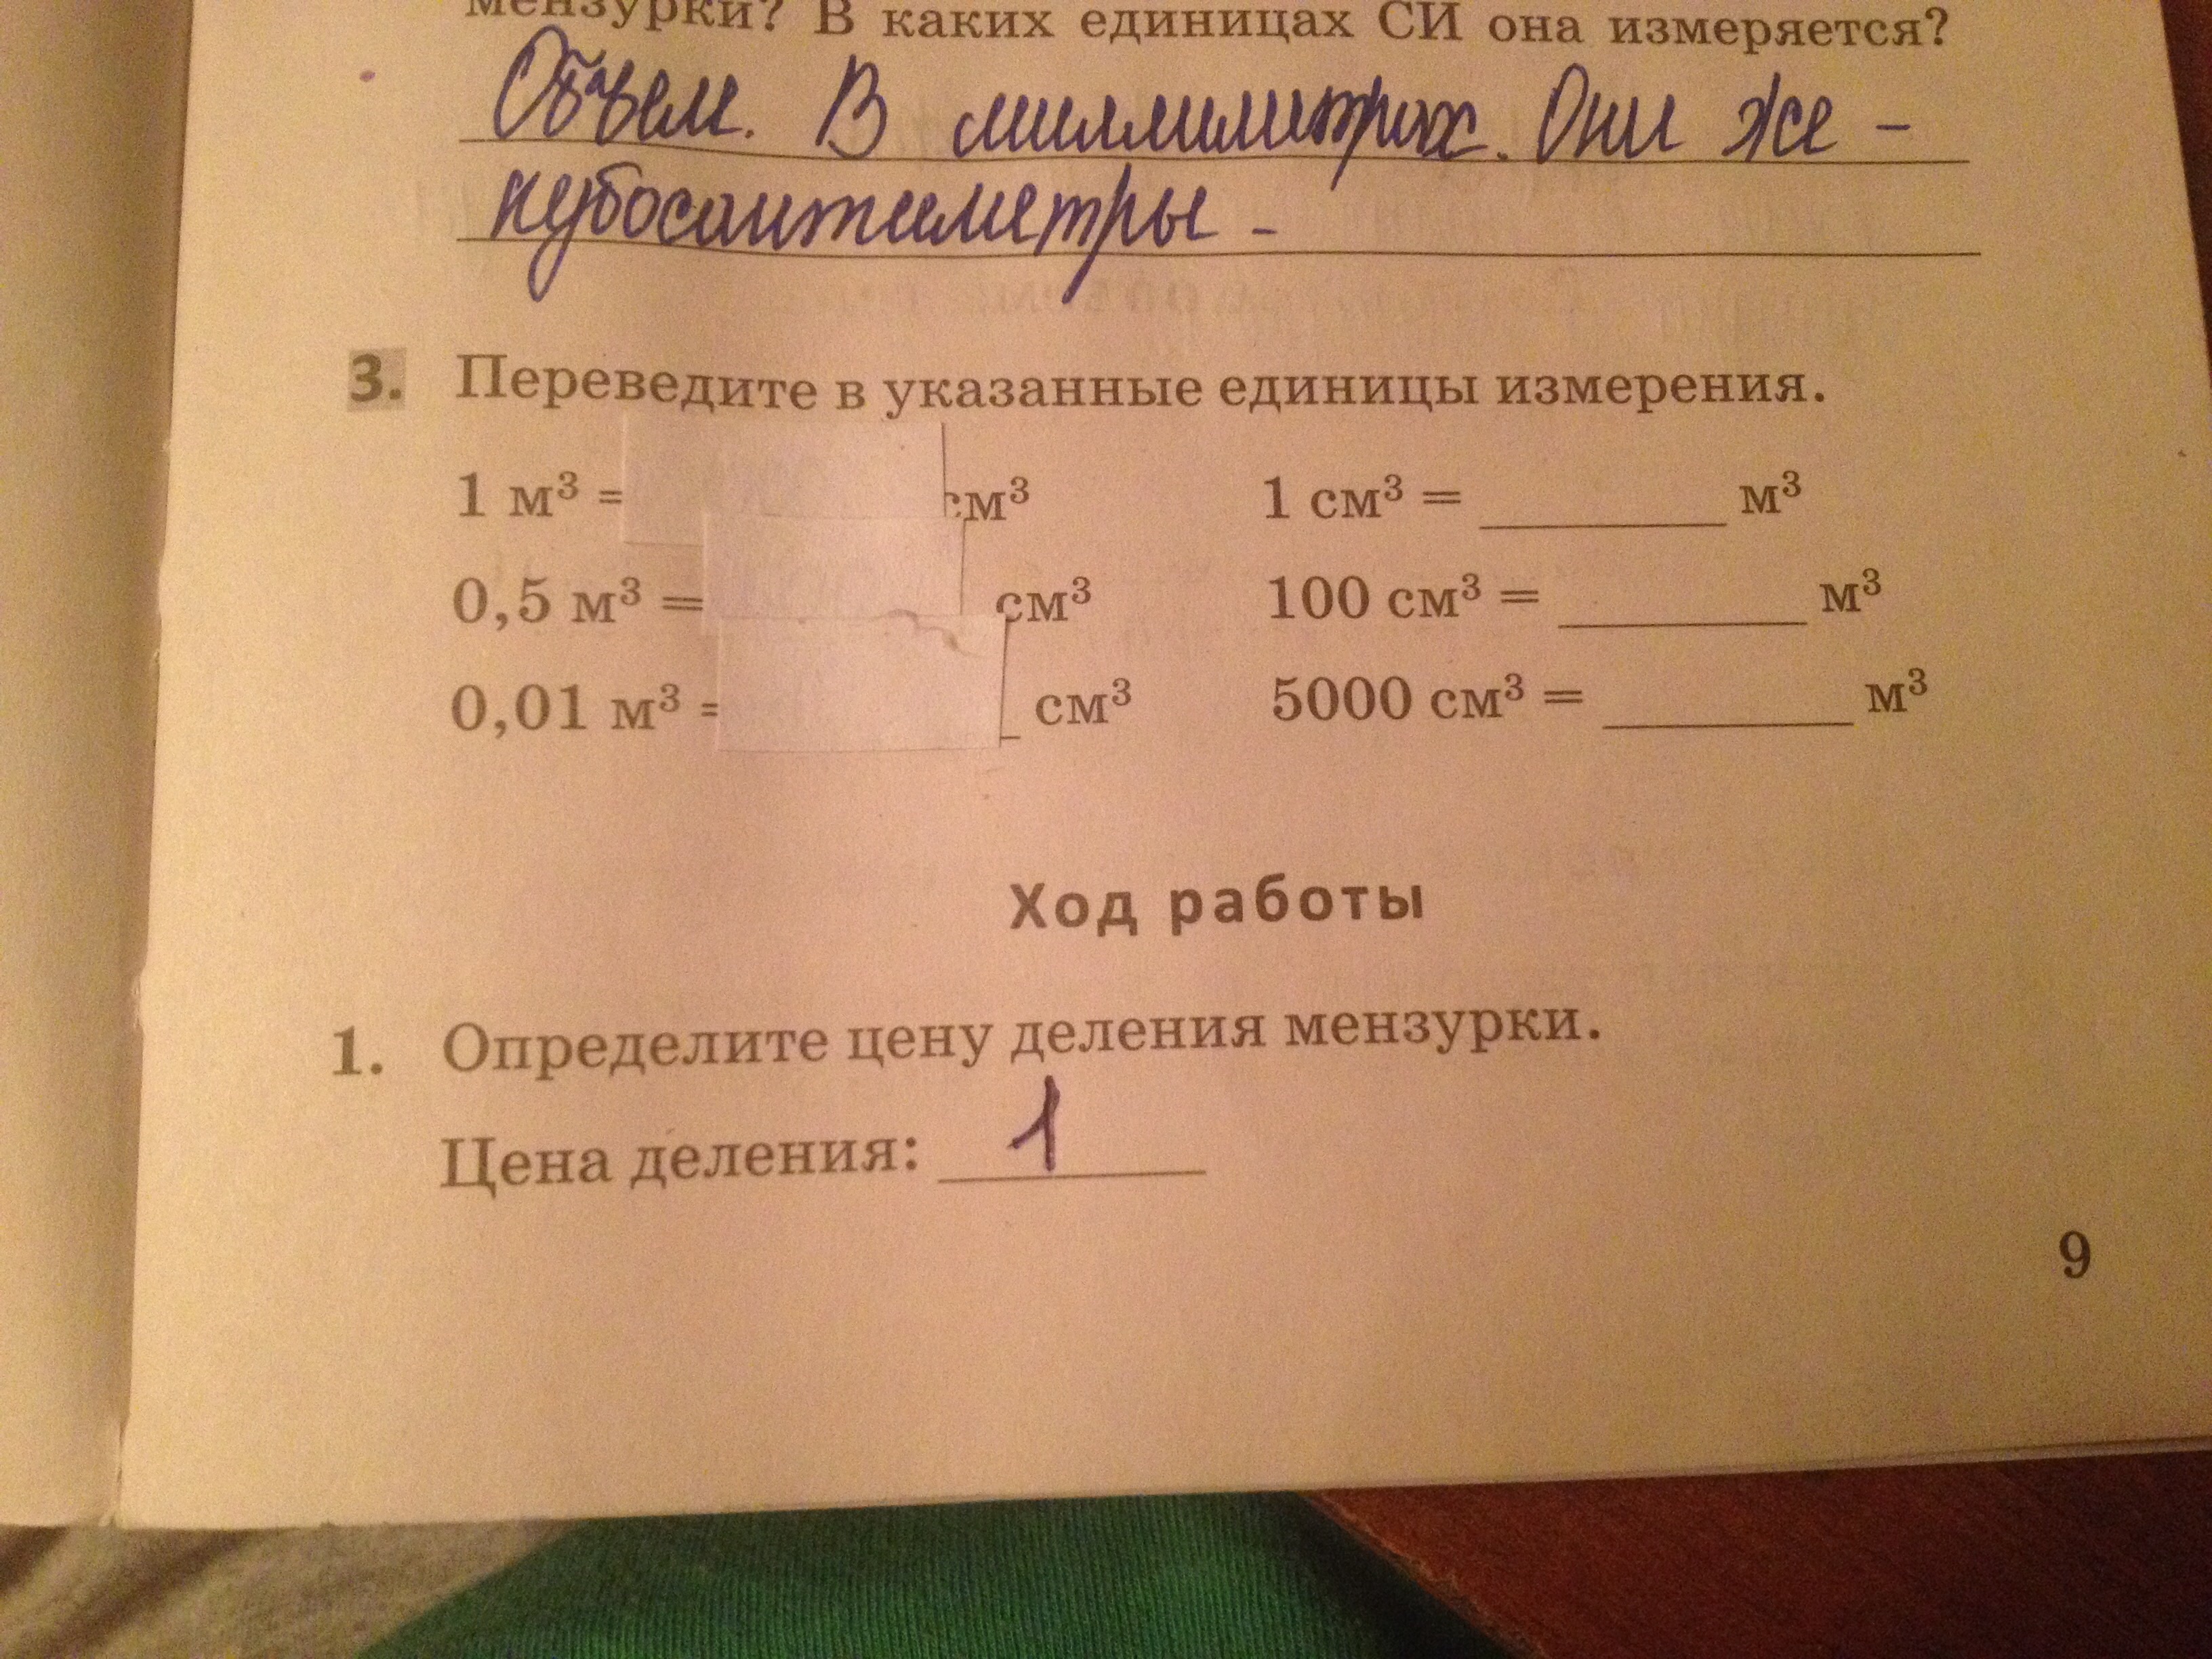 мензурки? В каких единицах СИ она измеряется?
Объем. В миллиметрах. Они же –
кубосантиметры –
3. Переведите в указанные единицы измерения.
1 м³ = см³ 1 см³ = ________ м³
0,5 м³ = см³ 100 см³ = ________ м³
0,01 м³ = _ см³ 5000 см³ = ________ м³
Ход работы
1. Определите цену деления мензурки.
Цена деления: 1
9